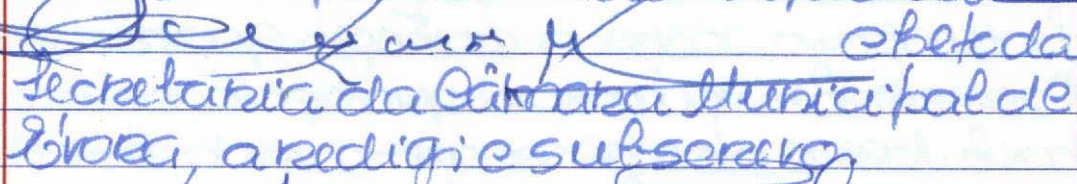 chefe da
Secretaria da Câmara Municipal de
Évora, a redigi e subscrevo,